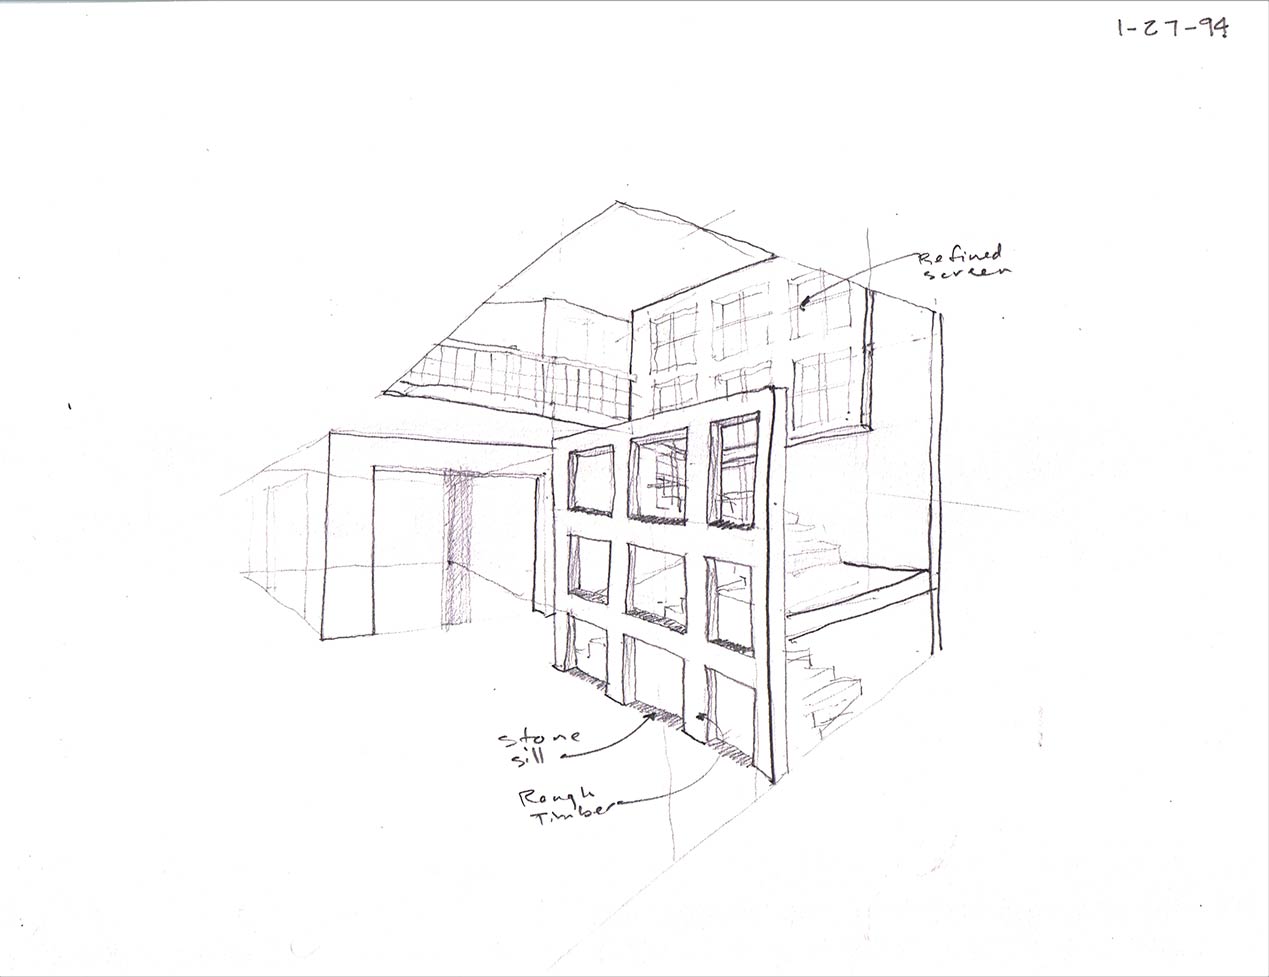 1-27-94
Refined
screen
stone
sill
Rough
Timber